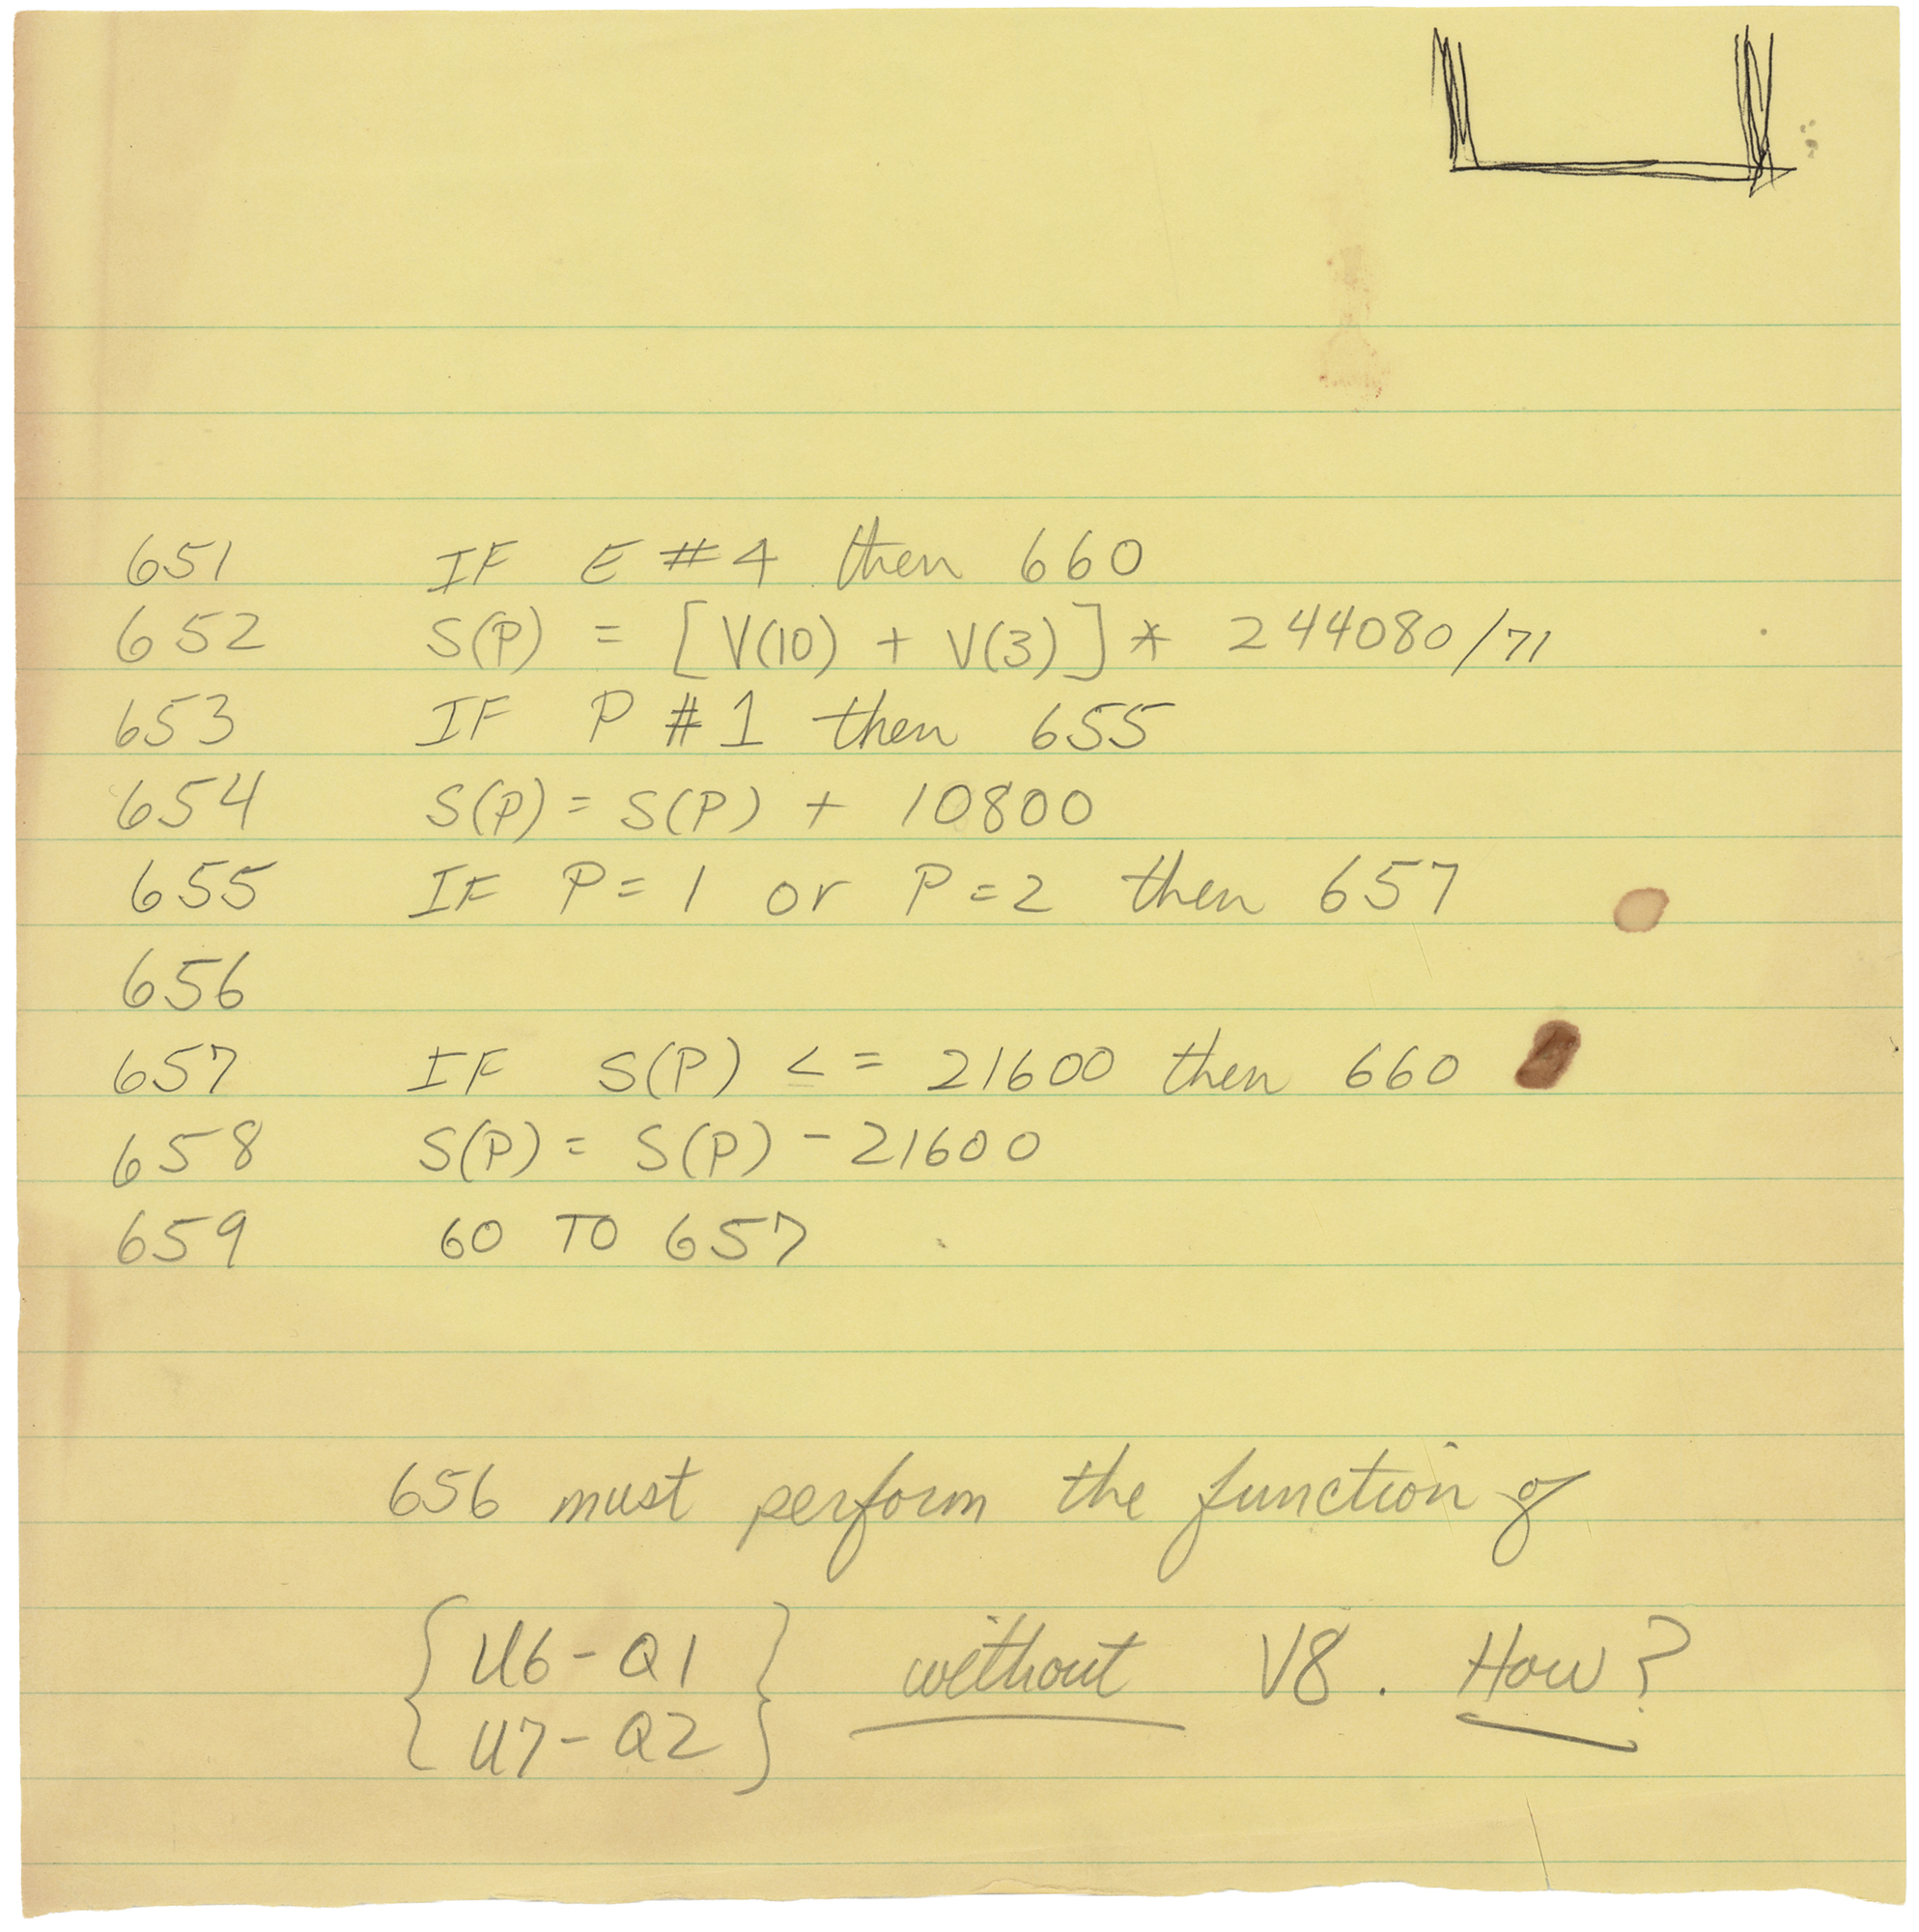 651 IF E #4 then 660
652 S(P) = [V(10) + V(3)] * 244080/71
653 IF P #1 then 655
654 S(P) = S(P) + 10800
655 IF P=1 or P=2 then 657
656
657 IF S(P) <= 21600 then 660
658 S(P) = S(P) - 21600
659 GO TO 657
656 must perform the function of
{U6-Q1
U7-Q2} without V8. How?